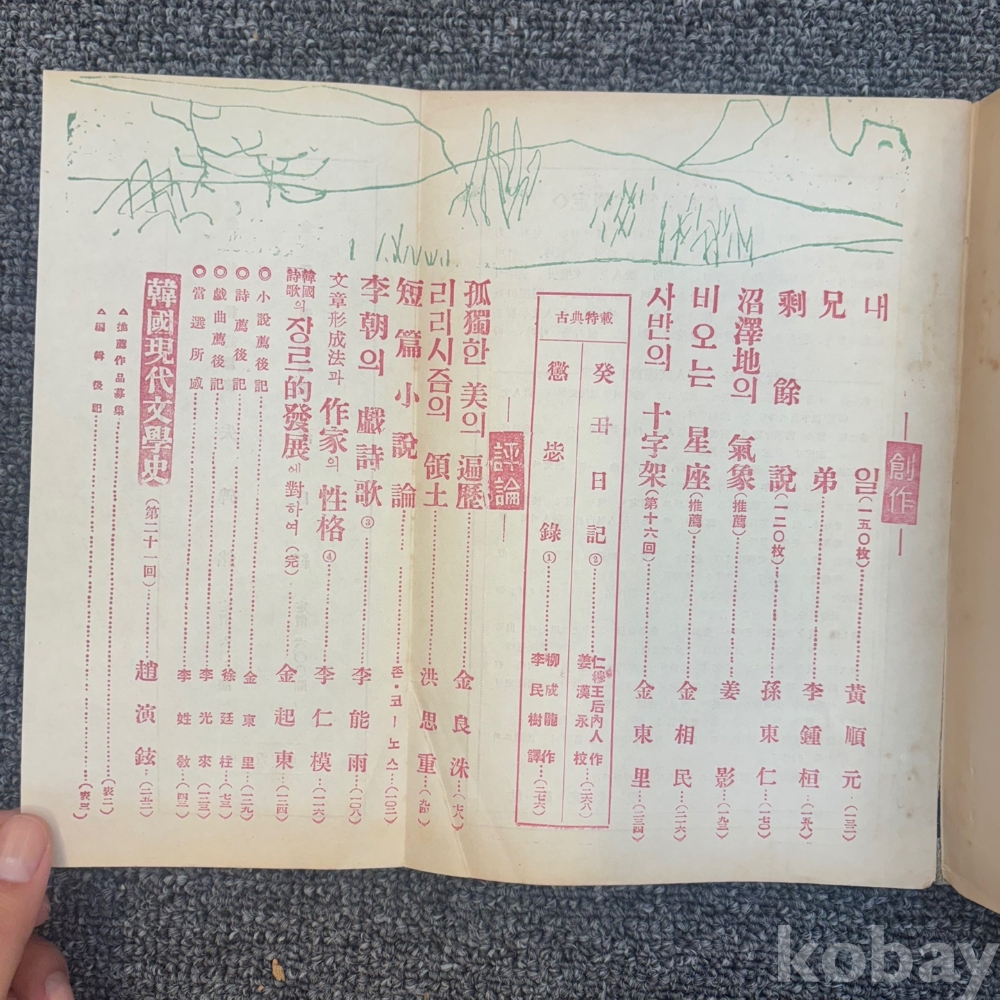 創作
내 일 (一五〇枚) 黃順元 (一三二)
兄弟 李鍾桓 (一五八)
剩餘說 (一二〇枚) 孫東仁 (一七〇)
沼澤地의 氣象 (推薦) 姜影 (一九二)
비오는 星座 (推薦) 金相民 (二一六)
사반의 十字架 (第十六回) 金東里 (二三四)
古典特載
癸丑日記 ② 仁穆王后內人 作 姜漢永 校 (二六八)
懲毖錄 ① 柳成龍 作 李民樹 譯 (二七六)
評論
孤獨한 美의 遍歷 金良洙 (七八)
리리시즘의 領土 洪思重 (九四)
短篇小說論 존·코ー노스 (一〇二)
李朝의 戱詩歌 ③ 李能雨 (一〇八)
文章形成法과 作家의 性格 ④ 李仁模 (一一六)
韓國詩歌의 장르的發展에 對하여 (完) 金起東 (一二四)
◎小說薦後記 金東里 (一二九)
◎詩薦後記 徐廷柱 (七三)
◎戱曲薦後記 李光來 (一二三)
◎當選所感 李姓敎 (四三)
韓國現代文學史 (第二十一回) 趙演鉉 (二五二)
▲推薦作品募集 (表二)
▲編輯後記 (表三)
kobay